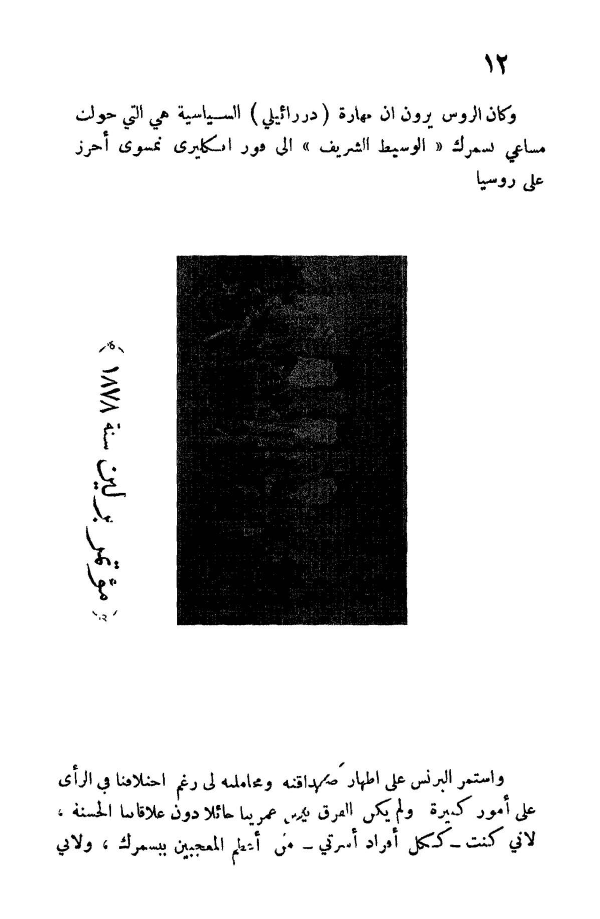 ١٢
وكان الروس يرون ان مهارة (دررائيلي) السياسية هي التي حولت
مساعي بسمرك « الوسيط الشريف » الى فوز انكليزى نمسوى أحرز
على روسيا
﴿ مؤتمر برلين سنة ١٨٧٨ ﴾
واستمر البرنس على اظهار صداقته ومجاملته لى رغم اختلافنا فى الرأى
على أمور كبيرة ولم يكن الفرق بين عمرينا حائلا دون علاقاتنا الحسنة ،
لاني كنت ــ ككل أفراد أسرتي ــ من أعظم المعجبين ببسمرك ، ولاني